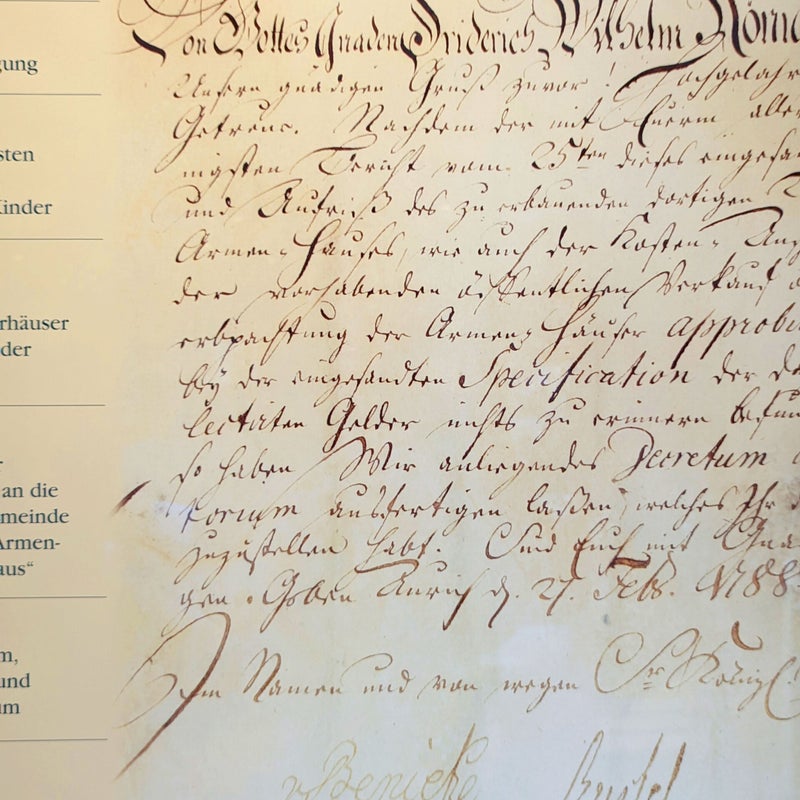 gung
sten
Kinder
rhäuser
der
an die
meinde
Armen-
aus“
m,
und
um
Von Gottes Gnaden Friderich Wilhelm König
Unsern gnädigen Gruß zuvor! Hochgelahr
Getreue. Nachdem der mit Eurem aller
nigsten Bericht vom 25ten dieses eingesan
und Aufriß des zu erbauenden dortigen
Armen-Hauses, wie auch der Kosten-Ans
der vorhabenden öffentlichen Verkauf
erbpachtung der Armen-Häuser approbi
bey der eingesandten Specification der
lectirten Gelder nichts zu erinnern befun
so haben Wir anliegendes Decretum
torium ausfertigen laßen, welches Ihr
zuzustellen habt. Sind Euch mit Gna
gen. Geben Aurich d. 27. Febr. 1788
Im Namen und von wegen Sr. Königl.